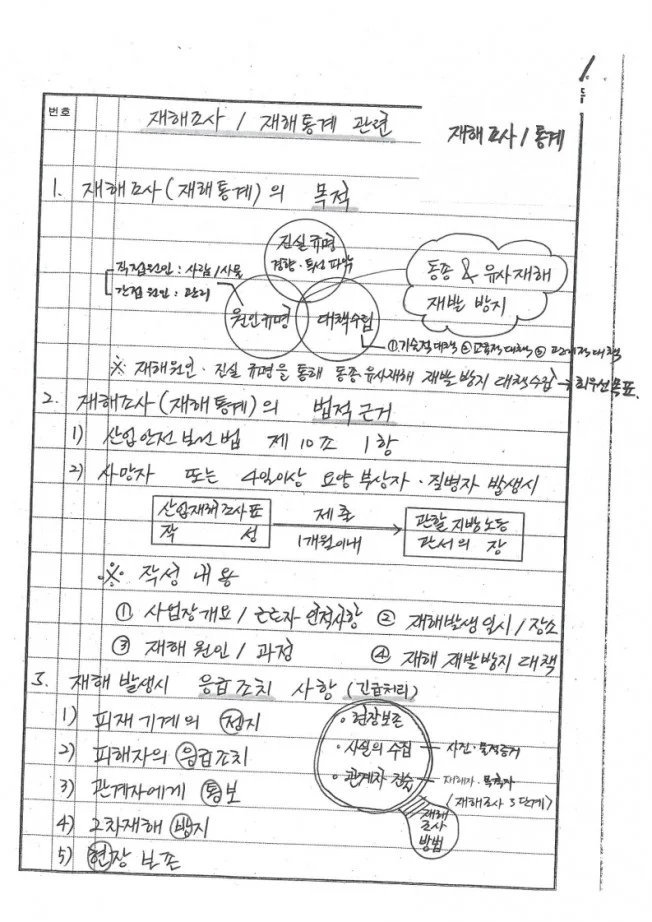 번호
재해조사 / 재해통계 관련
재해조사 / 통계
1. 재해조사(재해통계)의 목적
진실규명
경향·특성 파악
직접원인 : 사람/사물
간접원인 : 관리
원인규명
대책수립
동종 & 유사재해
재발 방지
①기술적대책 ②교육적대책 ③관리적대책
※ 재해원인·진실 규명을 통해 동종유사재해 재발방지 대책수립 → 최우선목표.
2. 재해조사(재해통계)의 법적근거
1) 산업안전보건법 제10조 1항
2) 사망자 또는 4일이상 요양 부상자·질병자 발생시
산업재해조사표
작 성
제출
1개월이내
관할지방노동
관서의 장
※ 작성 내용
① 사업장개요 / 근로자 인적사항 ② 재해발생일시 / 장소
③ 재해 원인 / 과정 ④ 재해 재발방지 대책
3. 재해 발생시 응급조치 사항 (긴급처리)
1) 피재기계의 정지
2) 피해자의 응급조치
3) 관계자에게 통보
4) 2차재해 방지
5) 현장 보존
· 현장보존
· 사실의 수집 — 사진·물적증거
· 관계자 진술 — 재해자·목격자
(재해조사 3단계)
재해
조사
방법